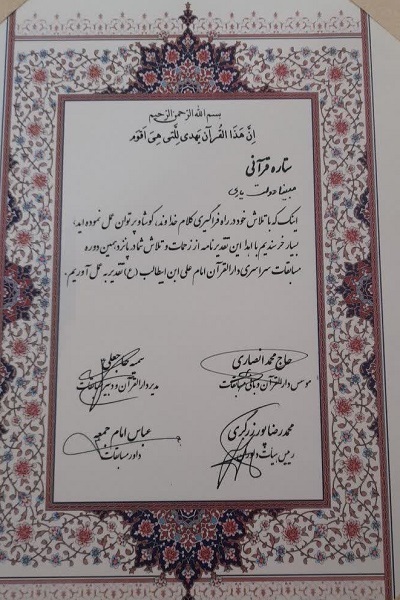 بسم الله الرحمن الرحیم
إِنَّ هَذَا القُرآنَ یَهدی لِلَّتی هِیَ اَقوَم
ستاره قرآنی
مبینا
اینک که با تلاش خود در راه فراگیری کلام خداوند، کوشا و پرتوان عمل نموده اید،
بسیار خرسندیم با اهدا این تقدیرنامه از زحمات و تلاش شما در پانزدهمین دوره
مسابقات سراسری دارالقرآن امام علی ابن ابیطالب (ع) تقدیر به عمل آوریم.
حاج محمد انصاری
موسس دارالقرآن و بانی مسابقات
سمیه
مدیر دارالقرآن و دبیر مسابقات
محمدرضا پورزرگری
رییس هیات داوران
عباس امام جمعه
داور مسابقات